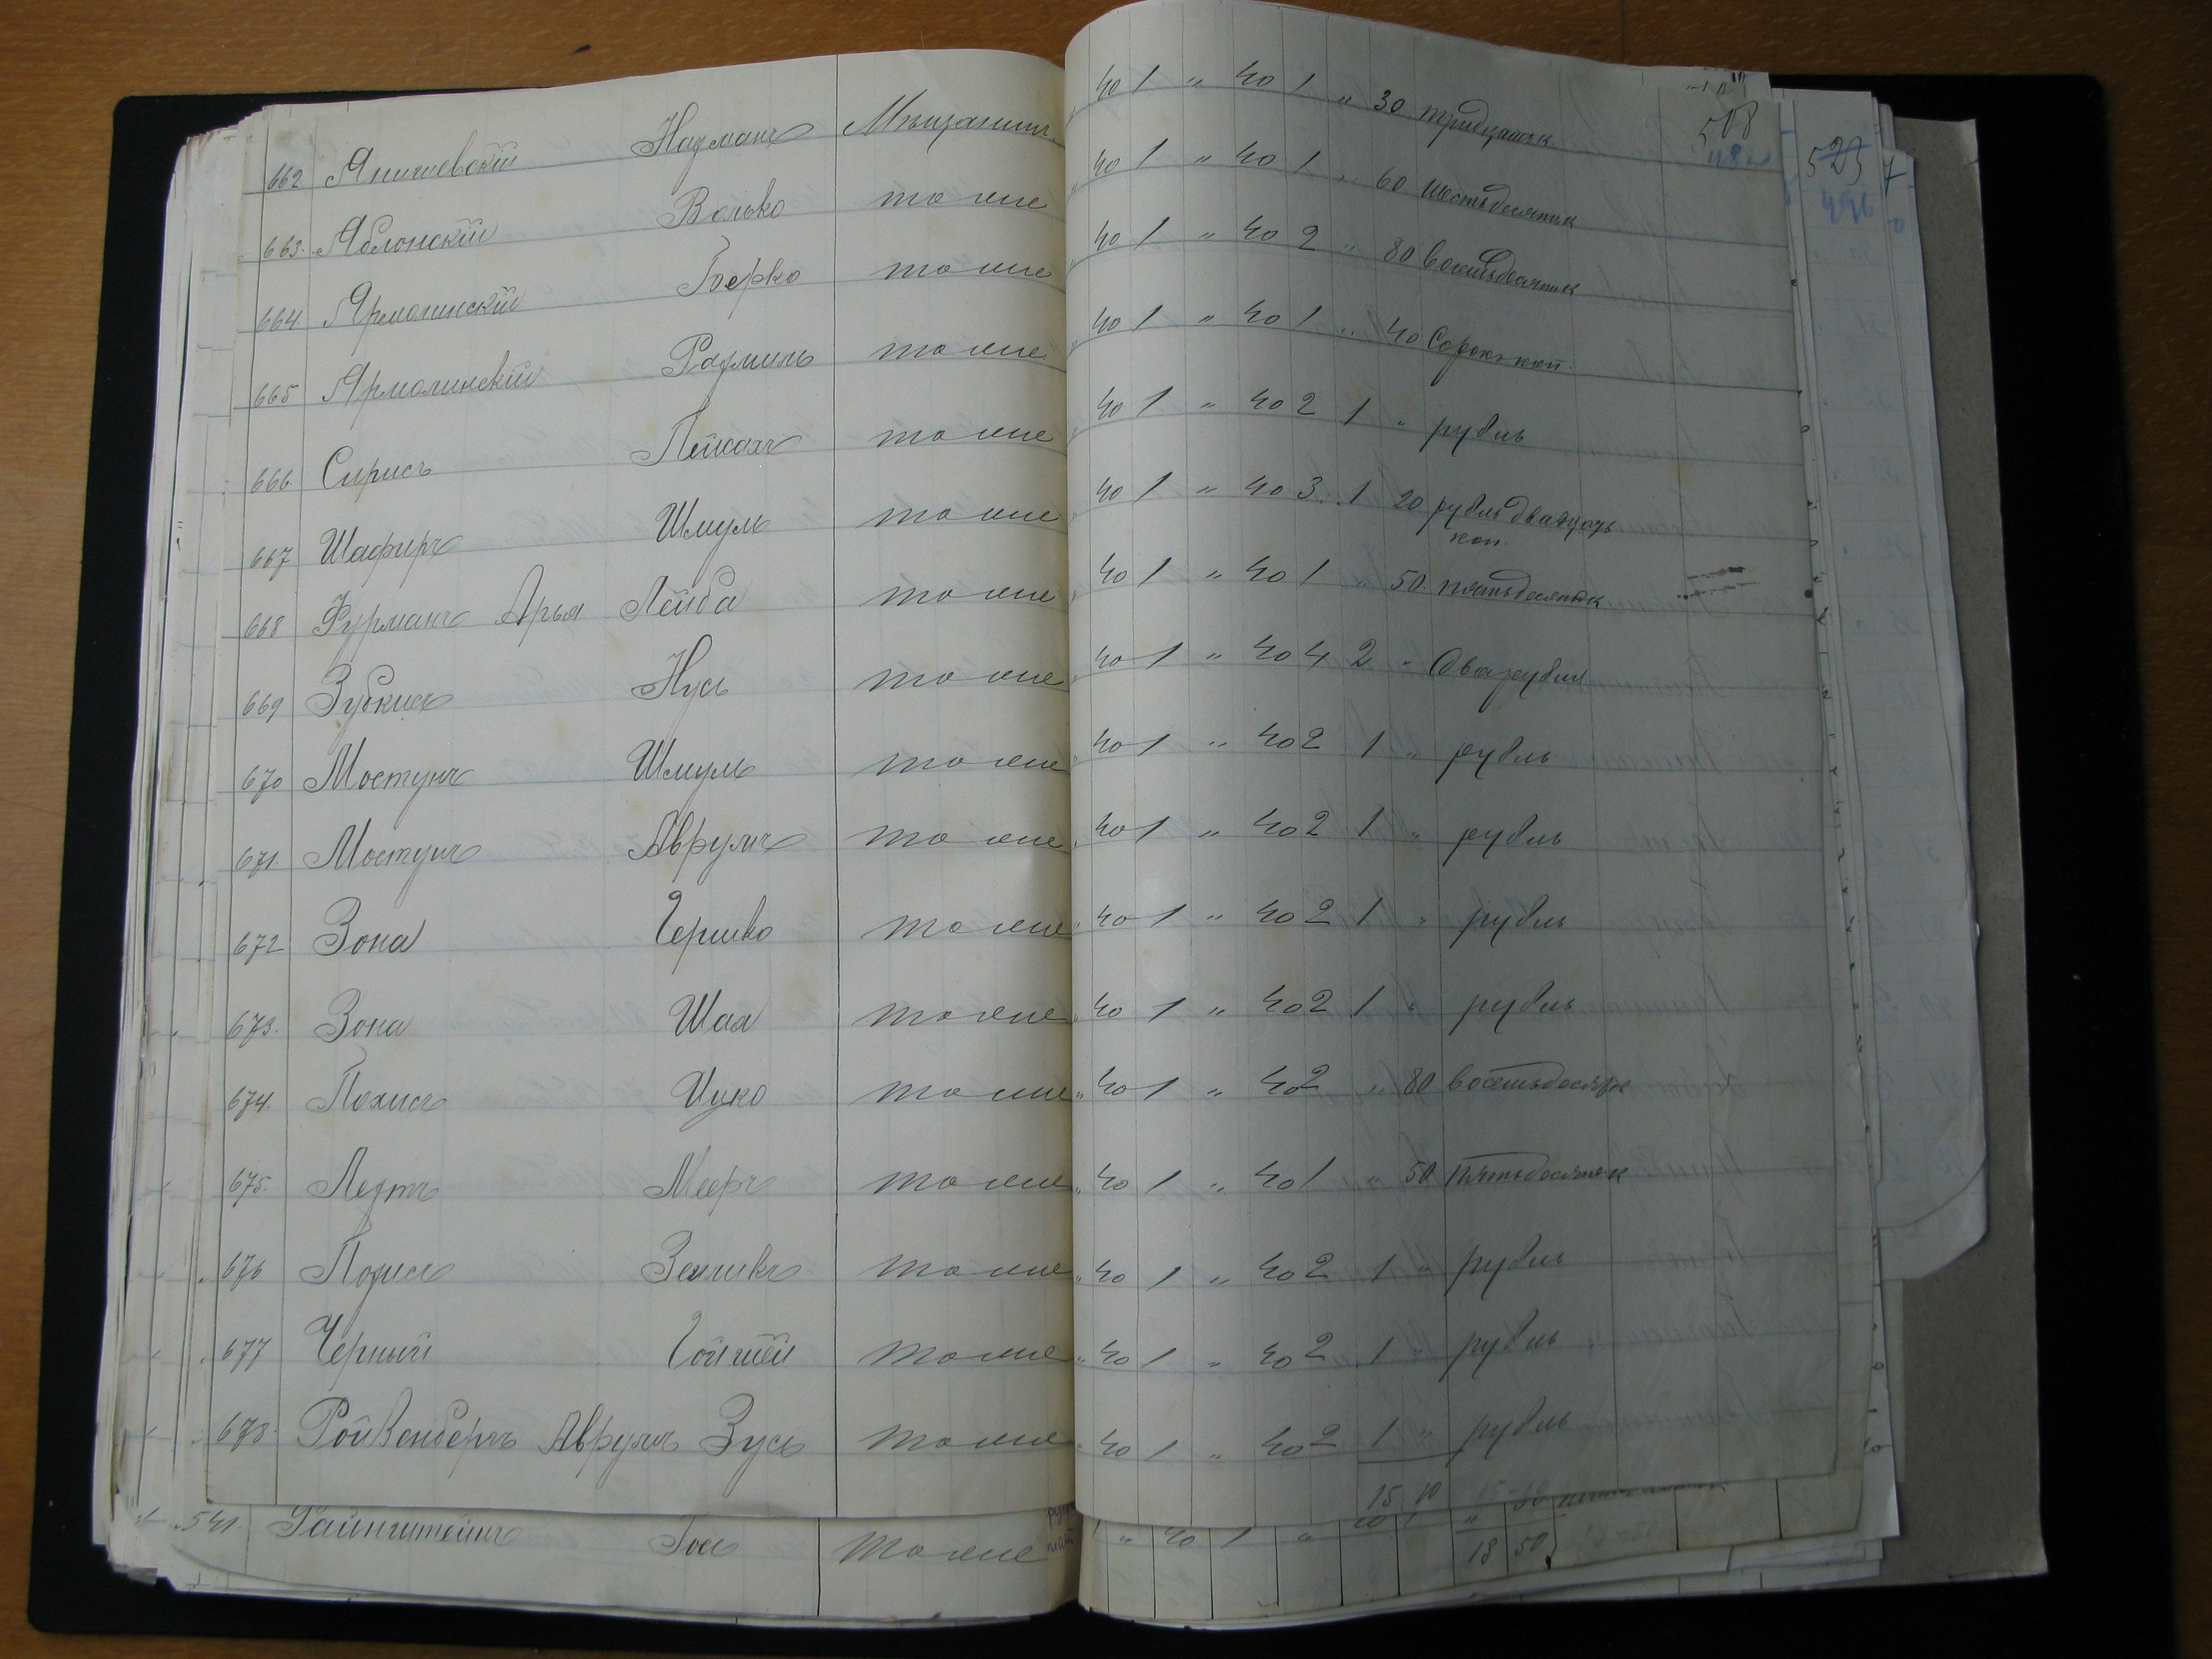 508
523 7
496
662 Янишевскій Нахманъ Мѣщанинъ " 40 1 " 40 1 " 30 тридцать к
663. Яблонскій Волько тоже " 40 1 " 40 1 " 60 шестьдесятъ к
664. Ярмолинскій Берко тоже " 40 1 " 40 2 " 80 восемьдесят к
665 Ярмолинскій Рахмиль тоже " 40 1 " 40 1 " 40 Сорокъ коп.
666 Сирисъ Пейсахъ тоже " 40 1 " 40 2 1 " рубль
667 Шафиръ Шмуль тоже " 40 1 " 40 3 1 20 рубль двадцать
коп.
668 Фурманъ Арья Лейба тоже " 40 1 " 40 1 " 50 пятьдесят к.
669 Зубкисъ Нусь тоже " 40 1 " 40 4 2 " два рубля
670 Мостунъ Шмуль тоже " 40 1 " 40 2 1 " рубль
671. Мостунъ Аврумъ тоже " 40 1 " 40 2 1 " рубль
672 Зона Гершко тоже " 40 1 " 40 2 1 " рубль
673. Зона Шая тоже " 40 1 " 40 2 1 " рубль
674. Похисъ Ицко тоже " 40 1 " 40 2 " 80 восемьдесят к
675. Мееръ тоже " 40 1 " 40 1 " 50 пятьдесят к
676 Зейликъ тоже " 40 1 " 40 2 1 " рубль
677 Черный тоже " 40 1 " 40 2 1 " рубль
678 Ройзенбергъ Аврумъ Зусь тоже " 40 1 " 40 2 1 " рубль
15 10
541. Файнштейнъ тоже " 40 1 "
18 50